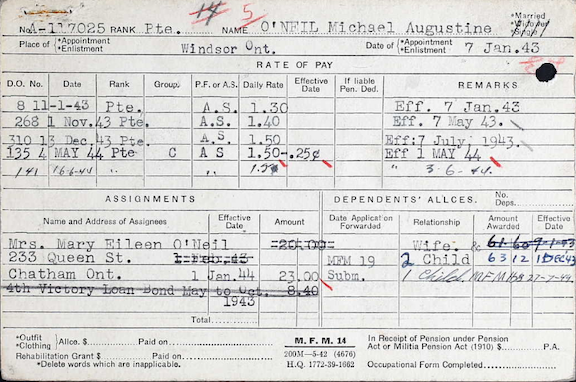 14 5
No. A-117025 RANK Pte. NAME O'NEIL Michael Augustine *Married *Widower *Single
Place of *Appointment *Enlistment Windsor Ont. Date of *Appointment *Enlistment 7 Jan. 43
RATE OF PAY
D.O. No. Date Rank Group P.F. or A.S. Daily Rate Effective Date If liable Pen. Ded. REMARKS
8 11-1-43 Pte. A.S. 1.30 Eff. 7 Jan.43
268 1 Nov.43 Pte. A.S. 1.40 Eff. 7 May 43.
310 13 Dec.43 Pte. A.S 1.50 Eff:7 July, 1943.
135 4 MAY 44 Pte C A S 1.50-.25¢ Eff 1 MAY 44
141 16-6-44 " " " 3-6-44.
ASSIGNMENTS DEPENDENTS' ALLCES. No. Deps.
Name and Address of Assignees Effective Date Amount Date Application Forwarded Relationship Amount Awarded Effective Date
Mrs. Mary Eileen O'Neil 20.00 Wife &
233 Queen St. 1 Feb.43 MFM 19 2 Child 63 12 1 DEC 43
Chatham Ont. 1 Jan.44 23.00 Subm. 1 Child.
4th Victory Loan Bond May to Oct. 8.40
1943
Total
*Outfit *Clothing Alce. $ Paid on M.F.M. 14 In Receipt of Pension under Pension Act or Militia Pension Act (1910) $ P.A.
Rehabilitation Grant $ Paid on 200M—5-42 (4676)
*Delete words which are inapplicable. H.Q. 1772-39-1662 Occupational Form Completed